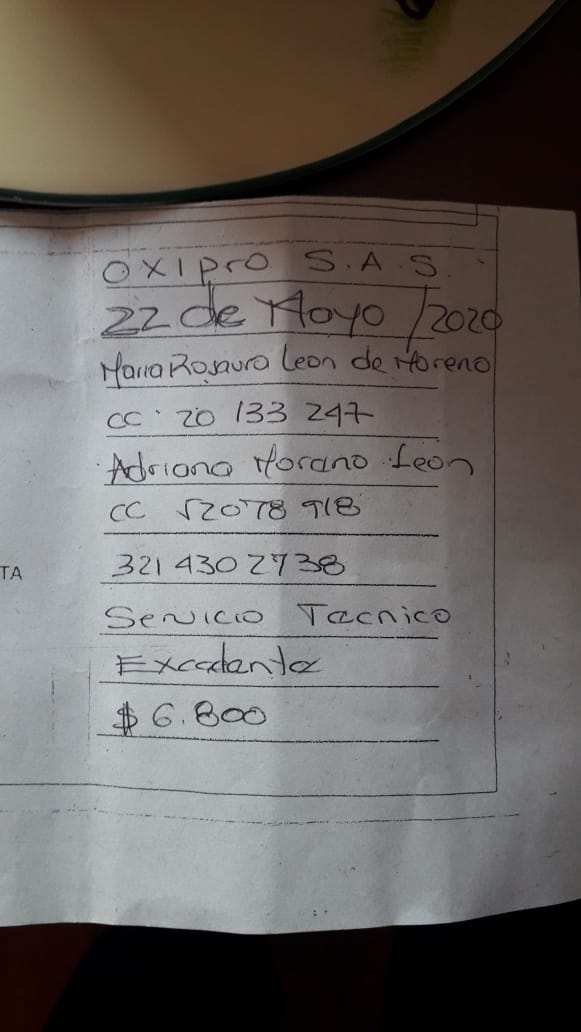 OXIPrO S.A.S.
22 de Mayo /2020
Maria Rosaura Leon de Moreno
CC. 20 133 247
Adriana Morano Leon
CC 52078 918
321 430 2738
TA
Servicio Tecnico
Excedente
$ 6.800